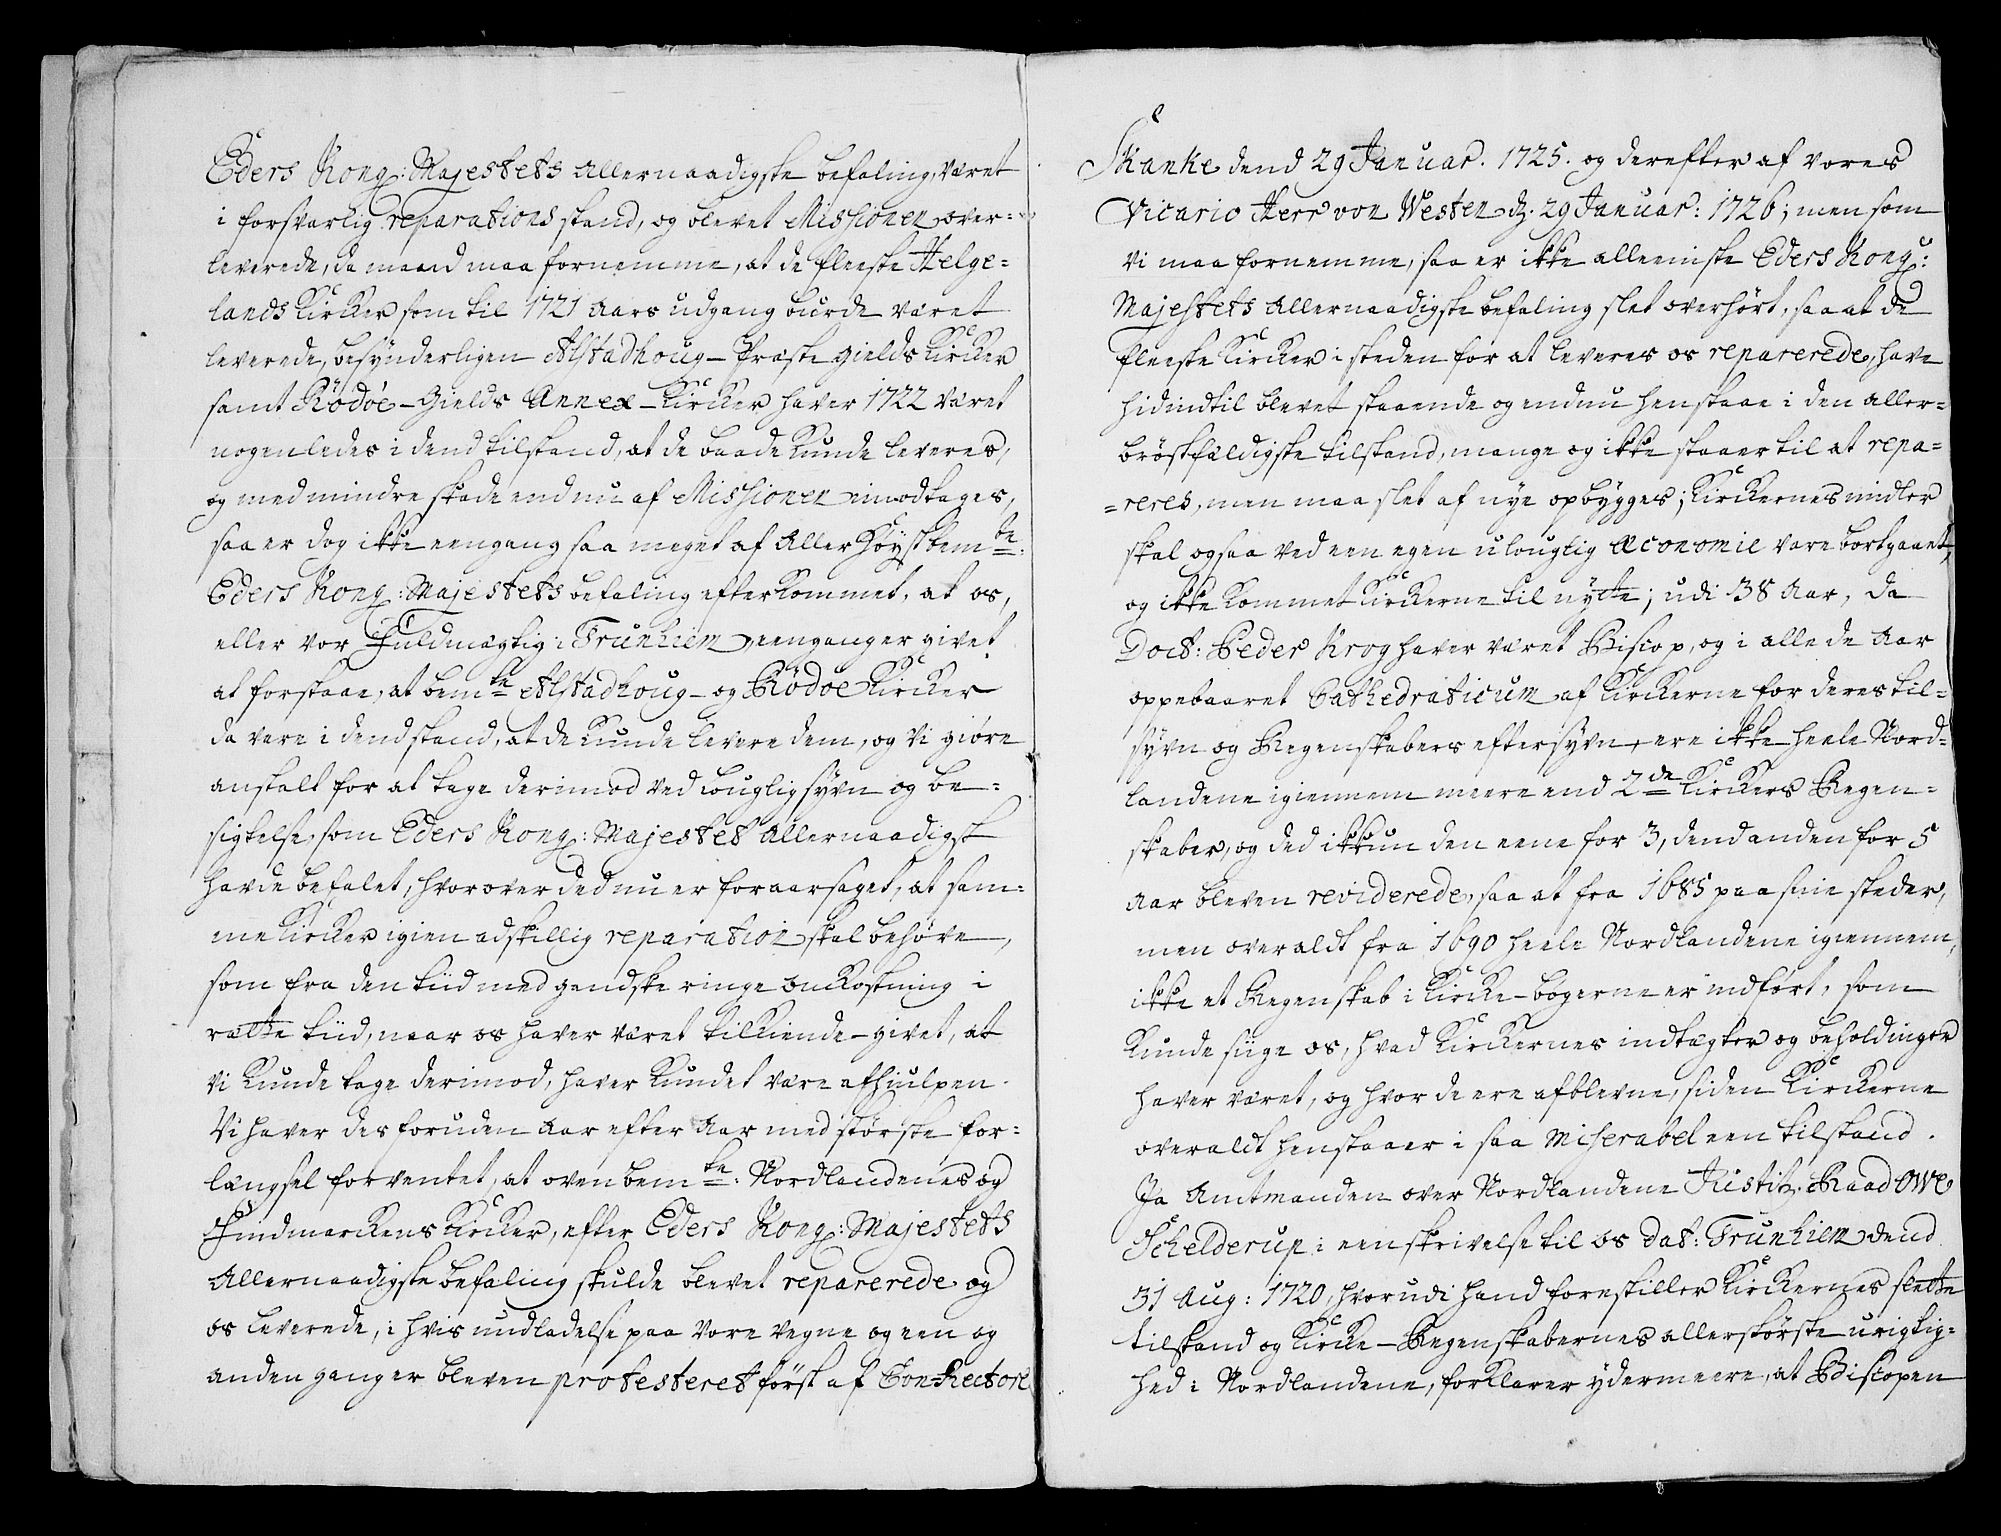 Eders Kong: Majestets allernaadigste befaling, været
i forsvarlig reparations stand, og blevet Missionen over=
leverede, da maand maa fornemme, at de fleeste Helge=
lands Kircker som til 1721 Aars udgang burde været
leverede, besynderligen Alstadhoug-Præste gields Kircker
samt Rödöe-Gields Annex-Kircker haver 1722 været
nogenledes i dend tilstand, at de baade kunde leveres,
og med mindre skade end nu af Missionen imodtages,
saa er dog ikke eengang saa meget af Aller Høystbem.te
Eders Kong: Majestets befaling efterkommet, at os,
eller vor Fuldmægtig i Trunhiem, eengang er givet
at forstaae, at bem.te Alstadhoug- og Rödöe Kircker
da vare i dend stand, at de kunde levere dem, og vi giøre
anstalt for at tage derimod ved louglig syvn og be=
sigtelse, som Eders Kong: Majestet allernaadigst
havde befalet, hvorover ded nu er foraarsaget, at sam=
me Kircker igien adskillig reparation skal behøve,
som fra den tiid med gandske ringe omkostning i
rætte tiid, naar os haver været tilkiende-givet, at
vi kunde tage derimod, haver kundet være afhiulpen.
Vi haver des foruden Aar efter Aar med største for=
længsel forventet, at ovenbem.te Nordlandenes og
Findmarckens Kircker, efter Eders Kong: Majestets
Allernaadigste befaling skulde blevet reparerede og
os leverede, i hvis undladelse paa vore vegne og een og
anden gang er bleven protesteret først af Con-Rectore
Skanke dend 29 Januar. 1725. og derefter af vores
Vicario Herr von Westen d. 29 Januar: 1726; men som
vi maa fornemme, saa er ikke alleeniste Eders Kong:
Majestets Allernaadigste befaling slet overhørt, saa at de
fleeste Kircker i steden for at leveres os reparerede, have
hidindtil blevet staaende og endnu henstaae i den aller=
bröstfældigste tilstand, mange og ikke staaer til at repa=
=reres, men maa slet af nye opbygges; Kirckernes midler
skal ogsaa ved een egen ulouglig oeconomie være bortgaaet,
og ikke kommet Kirckerne til nytte; udi 38 Aar, da
Doct: Peder Krog haver været Biscop, og i alle de Aar
oppebaaret Cathedraticum af Kirckerne for deres til=
syvn og Regenskabers eftersyvn, ere ikke heele Nord=
landene igiennem meere end 2.de Kirckers Regen=
skaber, og ded ikkun den eene for 3, dend anden for 5
Aar bleven reviderede, saa at fra 1685 paa sine steder,
men overaldt fra 1690 heele Nordlandene igiennem,
ikke et Regenskab i Kircke-bøgerne er indført, som
kunde siige os, hvad Kirckernes indtægter og beholdinger
haver været, og hvor de ere afblevne, siden Kirckerne
overaldt henstaaer i saa miserabel een tilstand.
Ja Amtmanden over Nordlandene Justitz-Raad Owe
Schelderup i een skrivelse til os dat: Trunhiem dend
31 Aug: 1720, hvorudi hand forestiller Kirckernes slette
tilstand og Kircke-Regenskabernes allerstørste urigtig=
hed i Nordlandene, forklarer ydermeere, at Biscopen